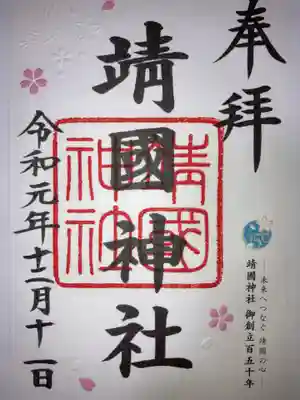 奉拝
靖國神社
靖國神社
令和元年十二月十一日
未来へつなぐ 靖國の心
靖國神社 御創立百五十年